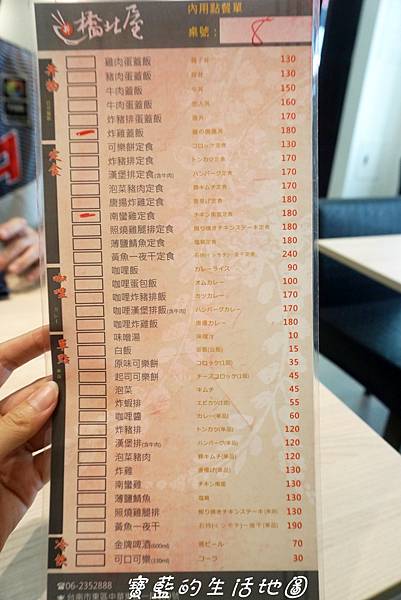 橋北屋
內用點餐單
桌號: 8
丼物
雞肉蛋蓋飯 親子丼 130
豬肉蛋蓋飯 130
牛肉蓋飯 牛丼 150
牛肉蛋蓋飯 他人丼 160
炸豬排蛋蓋飯 200
炸雞蓋飯 180
定食
可樂餅定食 コロッケ定食 130
炸豬排定食 トンカツ定食 170
漢堡排定食(含牛肉) ハンバーグ定食 170
泡菜豬肉定食 豚キムチ定食 170
唐揚炸雞定食 唐揚げ定食 180
南蠻雞定食 チキン南蛮定食 180
照燒雞腿排定食 照り焼きチキンステーキ定食 180
薄鹽鯖魚定食 塩鯖定食 180
黃魚一夜干定食 240
咖哩
咖哩飯 カレーライス 90
咖哩蛋包飯 オムカレー 100
咖哩炸豬排飯 カツカレー 170
咖哩漢堡排飯(含牛肉) ハンバーグカレー 170
咖哩炸雞飯 唐揚カレー 180
單點
味噌湯 味噌汁 10
白飯 15
原味可樂餅 コロッケ(1個) 35
起司可樂餅 チーズコロッケ(1個) 45
泡菜 キムチ 45
炸蝦排 エビカツ(1個) 55
咖哩醬 カレー(単品) 60
炸豬排 トンカツ(単品) 120
漢堡排(含牛肉) ハンバーグ(単品) 120
泡菜豬肉 豚キムチ(単品) 120
炸雞 唐揚げ(単品) 130
南蠻雞 チキン南蛮 130
薄鹽鯖魚 塩鯖 130
照燒雞腿排 照り焼きチキンステーキ(単品) 130
黃魚一夜干 190
冷飲
金牌啤酒(600ml) 瓶ビール 70
可口可樂(330ml) コーラ 30
☎06-2352888
台南市東區中華
寶藍的生活地圖